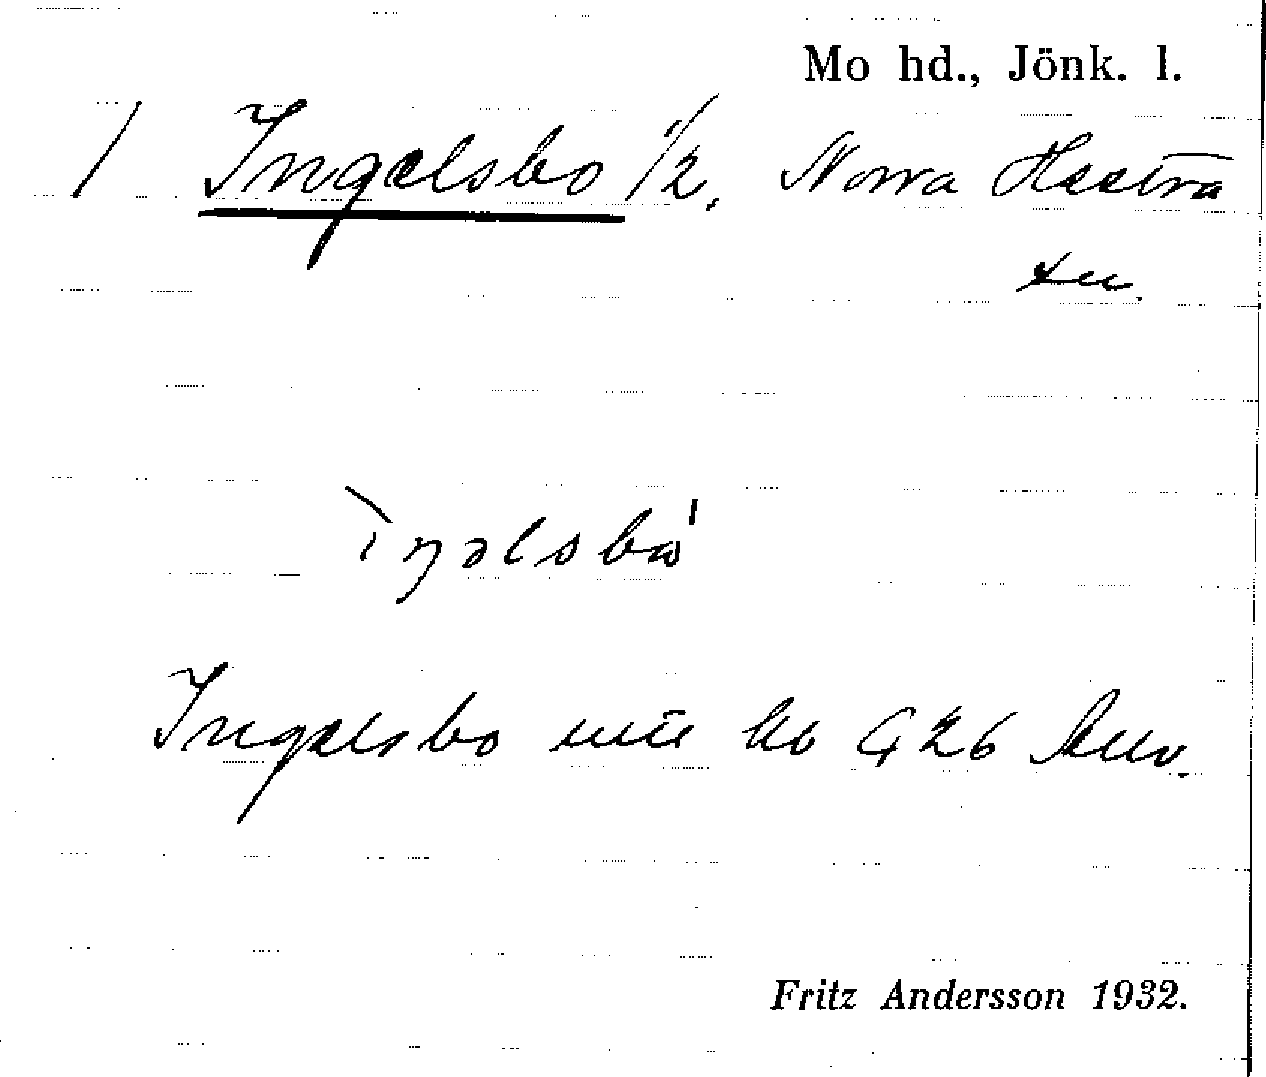 Mo hd., Jönk. l.
/ Ingelsbo 1/2, Norra Hestra
sn.
ìŋəlsbω'
Ingelsbo 426
Fritz Andersson 1932.